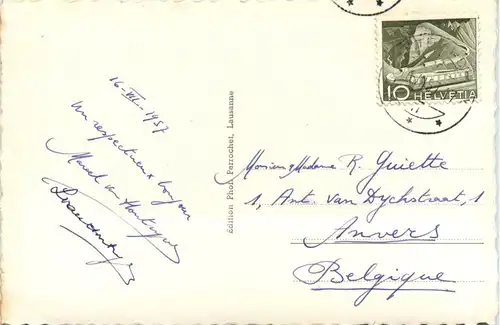 10 HELVETIA
16-VII-1957
Un respectueux bonjour
Marcel
Édition Phot. Perrochet, Lausanne
Monsieur & Madame R. Guiette
1, Ant. van Dyckstraat, 1
Anvers
Belgique